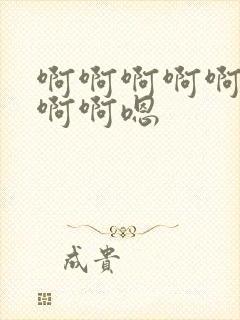 啊啊啊啊啊
啊啊嗯
成貴